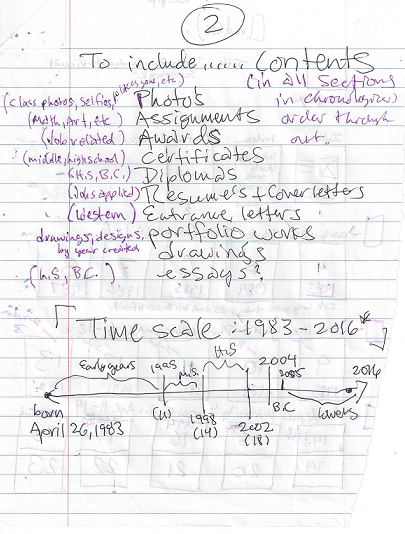 2
To include..... Contents
(in all sections
in chronological
order through
out.
(class photos, selfies, places gone, etc.) Photos
(Math, Art, etc) Assignments
(Job related) Awards
(middle, highschool) Certificates
(H.S, B.C.) Diplomas
(Jobs applied) Resume's + Cover letters
(Western) Entrance letters
drawings, designs, portfolio works
by year created drawings
(H.S, B.C.) essays?
Time scale : 1983 - 2016*
H.S
Early years 1995 M.S. 2004 2005 2016
born (11) 1998 B.C
April 26, 1983 (14) 2002
(18)